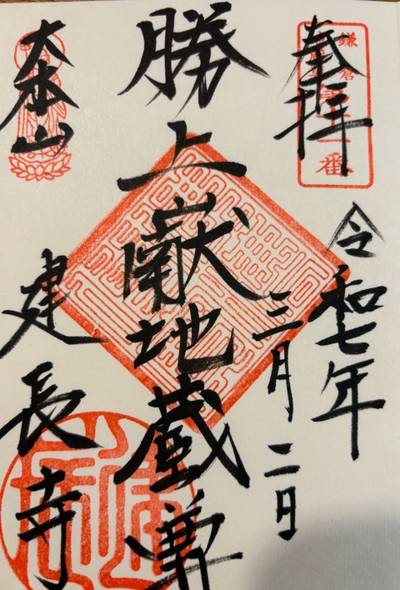 鎌倉
番
奉拝
令和七年
三月二日
勝上嶽地蔵尊
大本山
建長寺